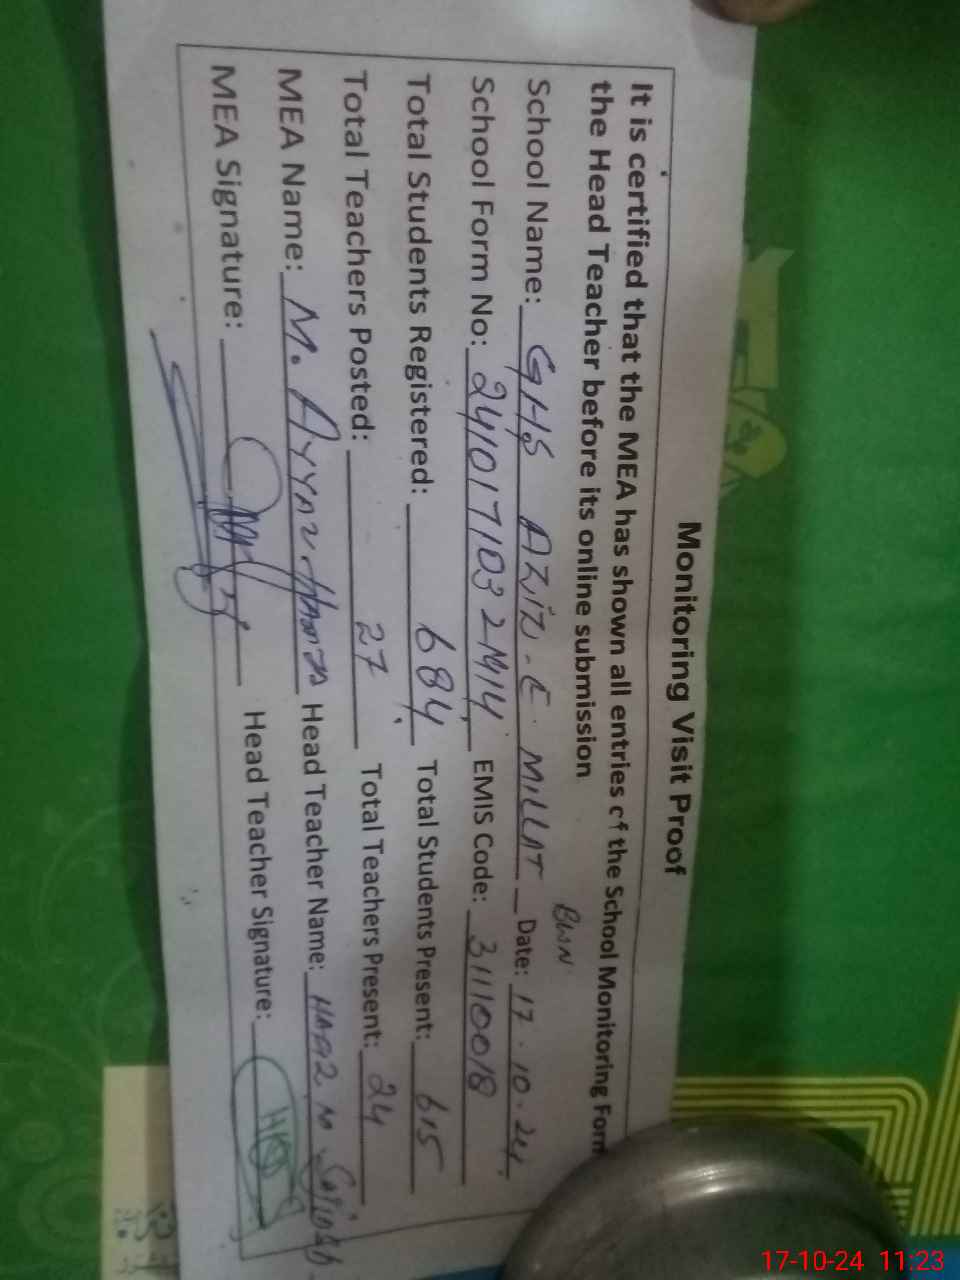 Monitoring Visit Proof
It is certified that the MEA has shown all entries of the School Monitoring Form
the Head Teacher before its online submission
BWN
School Name: GHS AZIZ-E-MILLAT Date: 17-10-24
School Form No: 2410171032M14 EMIS Code: 31110018
Total Students Registered: 684 Total Students Present: 615
Total Teachers Posted: 27 Total Teachers Present: 24
MEA Name: M. Head Teacher Name:
MEA Signature: Head Teacher Signature:
17-10-24 11:23